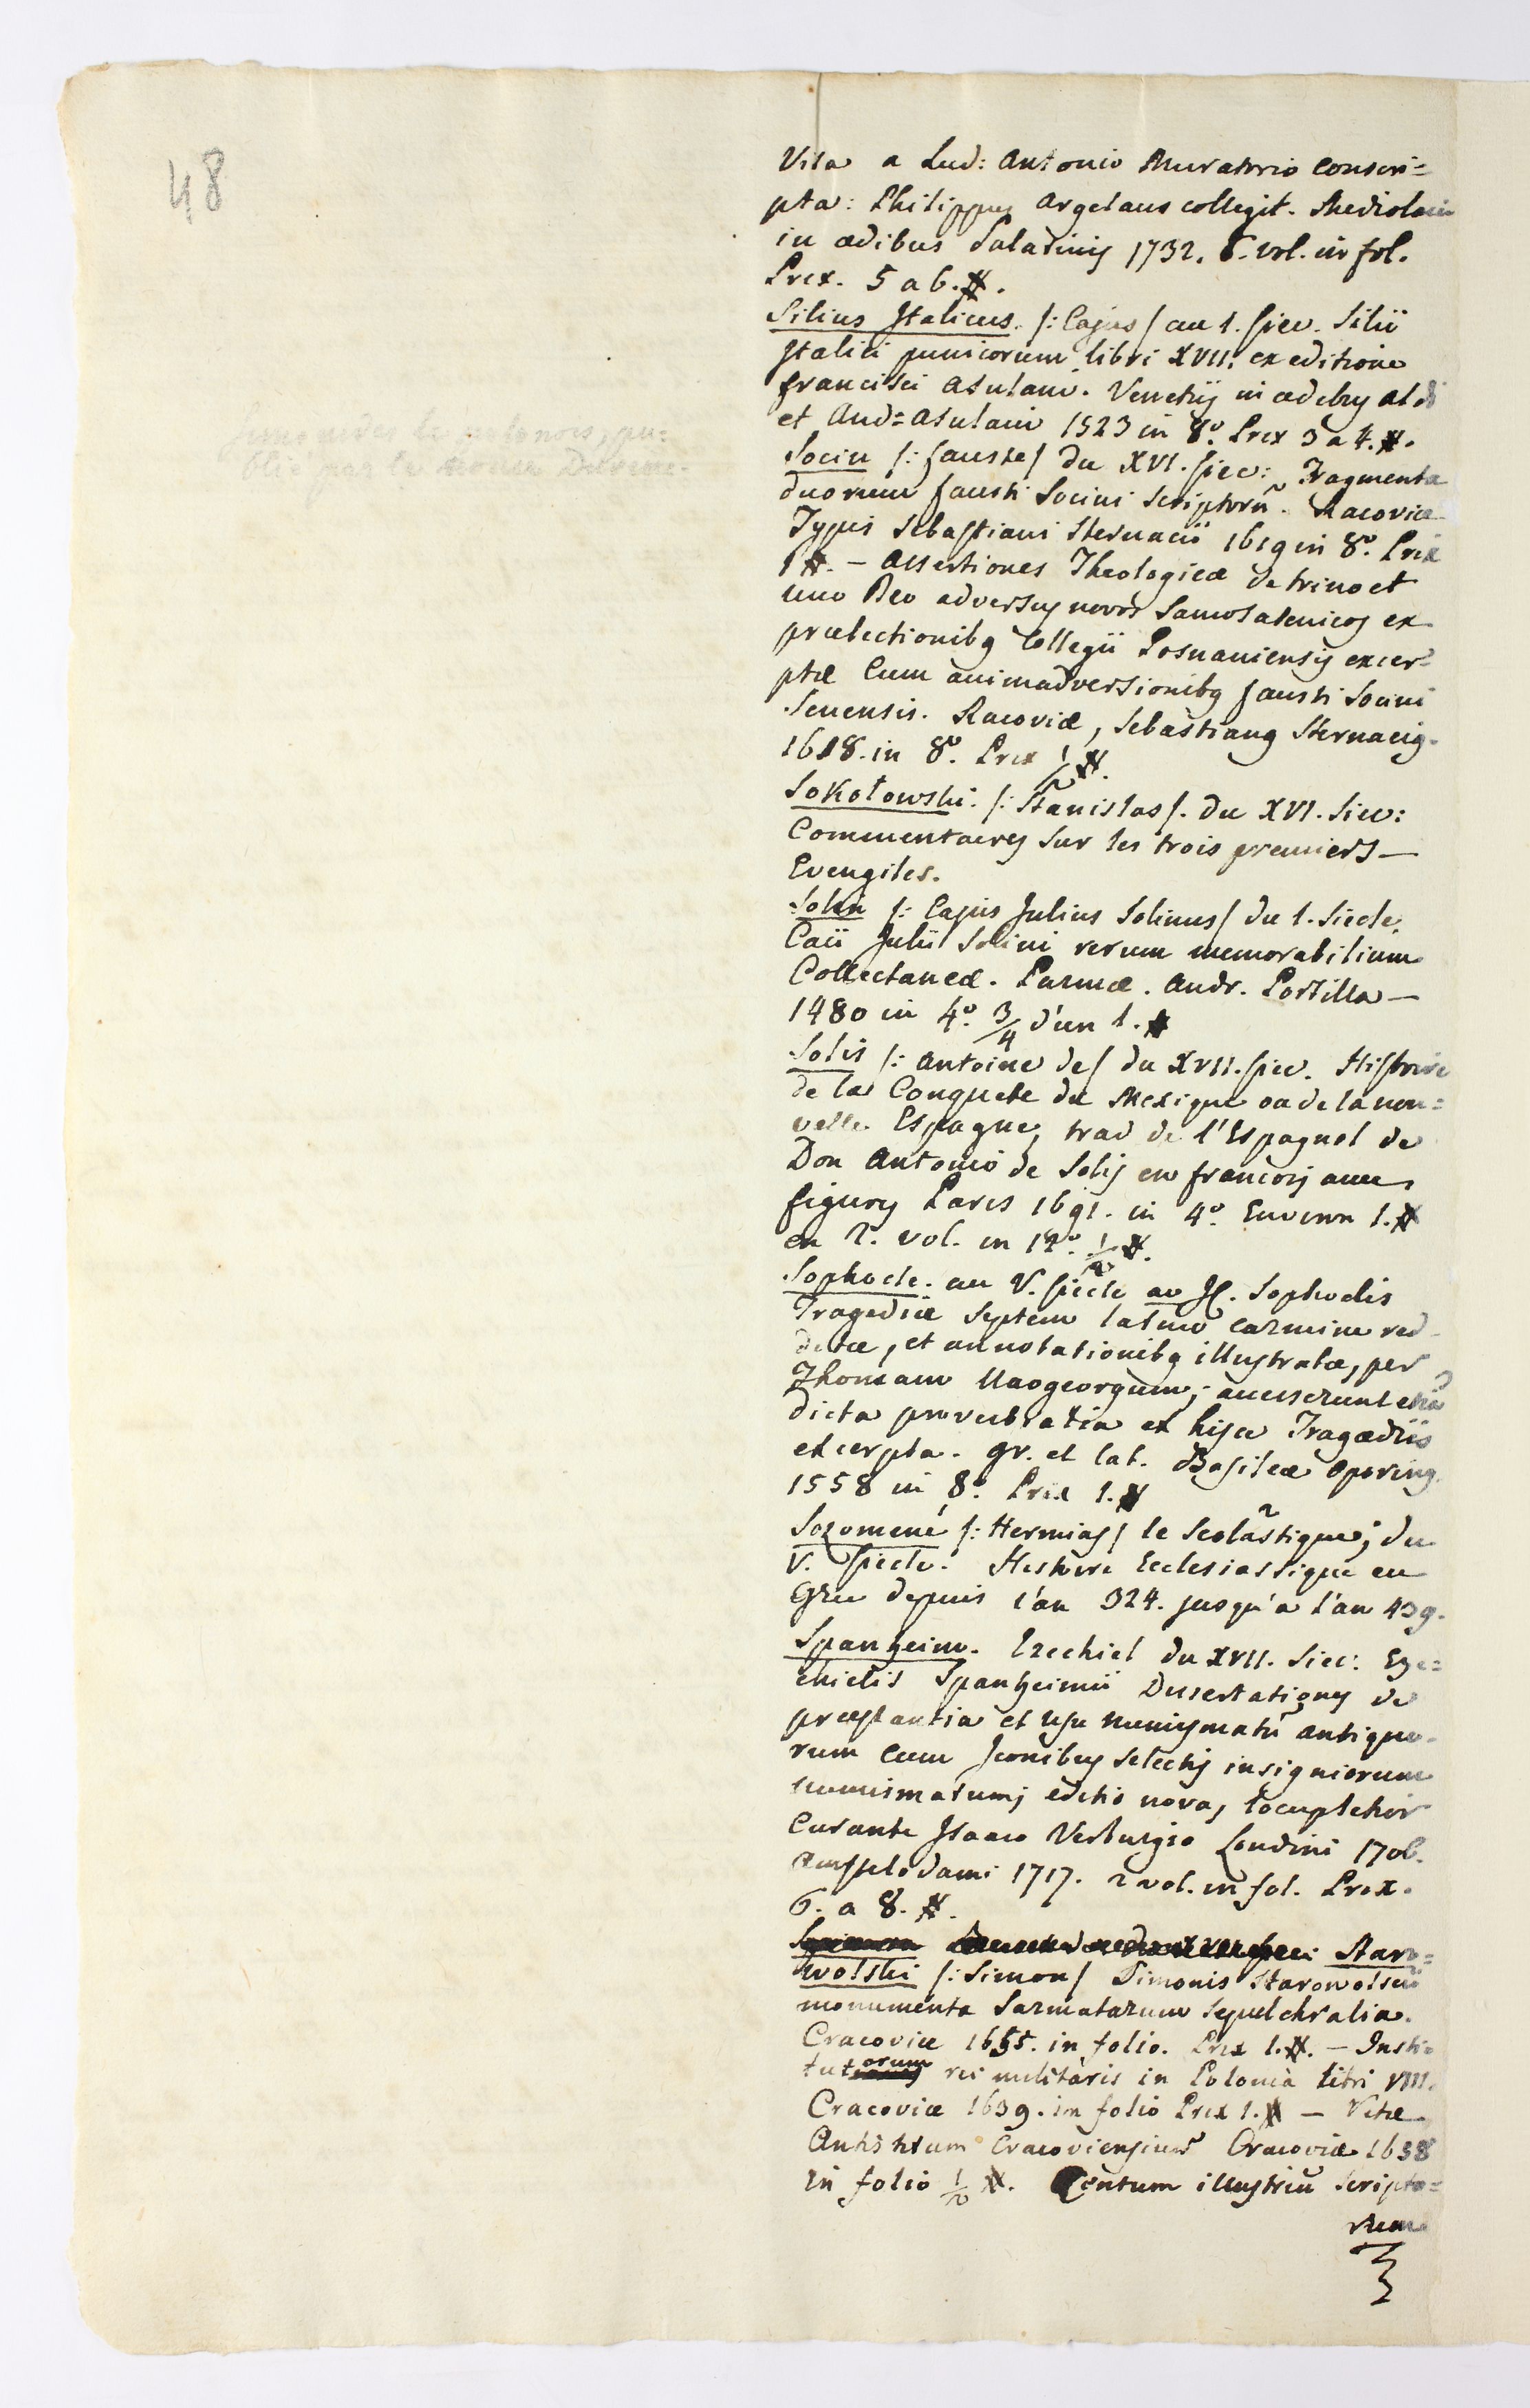 48
Vita a Lud: Antonio Muratorio conscri=
pta: Philippus Argelaus collegit. Mediolani
in ædibus Palatinis 1732. 6. vol. in fol.
Prix. 5 a 6. #.
Silius Italicus. /: Cajus / au 1. siec. Silii
Italici punicorum libri XVII. ex editione
francisci Asulani. Venetiis in ædibus Aldi
et And= Asulani 1523 in 8º. Prix 3 a 4. #.
Socin /: fauste / du XVI. siec: Fragmenta
duorum fausti Socini Scriptorũ. Racoviæ
Typis Sebastiani Sternacii 1619 in 8º. Prix
1 #. – Assertiones Theologicæ de trino et
uno Deo adversus novos Samosatenicos ex
prælectionibq Collegii Posnaniensis excer=
ptæ Cum animadversionibq fausti Socini
Senensis. Racoviæ, Sebastianq Sternaciq.
1618. in 8º. Prix 1/2 #.
Sokołowski. /: Stanislas /. du XVI. Siec:
Commentaires sur les trois premiers —
Evengiles.
Solin /: Cajus Julius Solinus / du 1. Siecle.
Caii Julii Solini rerum memorabilium
Collectaneæ. Parmæ. Andr. Portilla —
1480 in 4º. 3/4 d'un 1. #
Solis /: Antoine de / du XVII. siec. Histoire
de la Conquete du Mexique ou de la nou=
velle Espagne, trad de l'Espagnol de
Don Antonio de Solis en francois avec
figures Paris 1691. in 4º. Environ 1. #
en 2. vol. in 12º. 1/2 #.
Sophocle. au V. siecle av JC. Sophoclis
Tragediæ Septem latino carmine red=
ditæ, et annotationibq illustratæ, per
Thomam Naogeorgum; accesserunt etiã
dicta proverbialia ex hisce Tragædiis
excerpta. gr. et lat. Basileæ Oporinq.
1558 in 8º. Prix 1. #
Sozomene /: Hermias / le Scolastique; du
V. siecle. Histoire Ecclesiastique en
Grec depuis l'an 324. jusqu'a l'an 439.
Spanheim. Ezechiel du XVII. Siec: Eze=
chielis Spanheimii Dissertationes de
præstantia et usu numismatũ antiquo=
rum cum Iconibus selectis insigniorum
numismatum; editio nova, locupletior
curante Isaaco Verburgio Londini 1706.
Amstelodami 1717. 2 vol. in fol. Prix.
6. a 8. #.
Staro=
wolski /: Simon / Simonis Starowolscii
monumenta Sarmatarum Sepulchralia.
Cracoviæ 1655. in folio. Prix 1. #. – Insti=
tutorum rei militaris in Polonia libri VIII.
Cracoviæ 1639. in folio Prix 1. # – Vitæ
Antistitum Cracoviensium Cracoviæ 1658
in folio 1/2 #. Centum illustriũ Scripto=
rum